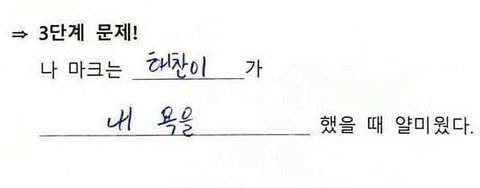 ⇒ 3단계 문제!
나 마크는 태찬이 가
내 욕을 했을 때 얄미웠다.